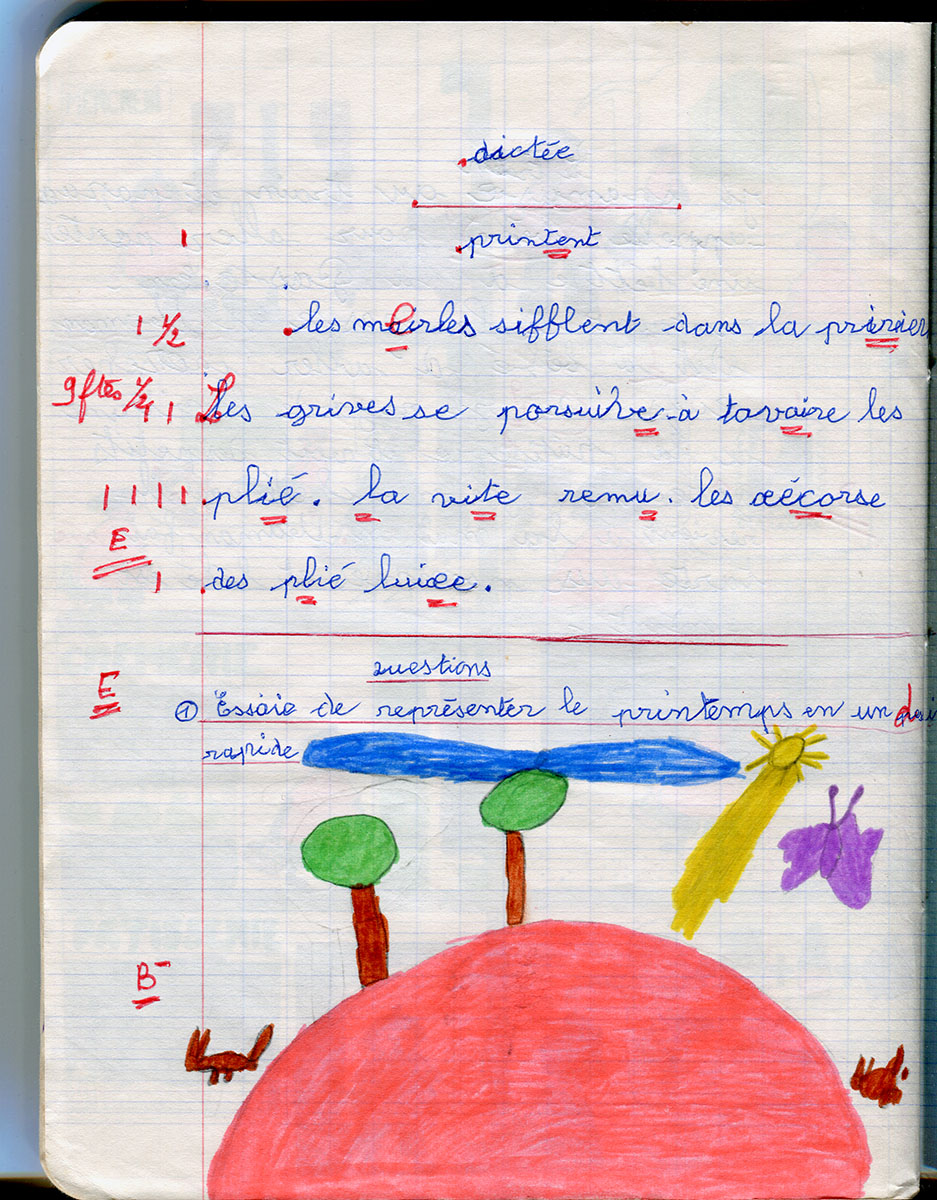 dictée
1 printent
1 1/2 les merles sifflent dans la prérier
9 ftes 1/2 1 Les grives se porsuive à tavaire les
1 1 1 1 plié. la vite remu. les écorse
E
1 des plié luire.
questions
E
① Essaie de représenter le printemps en un dessin
rapide
B-